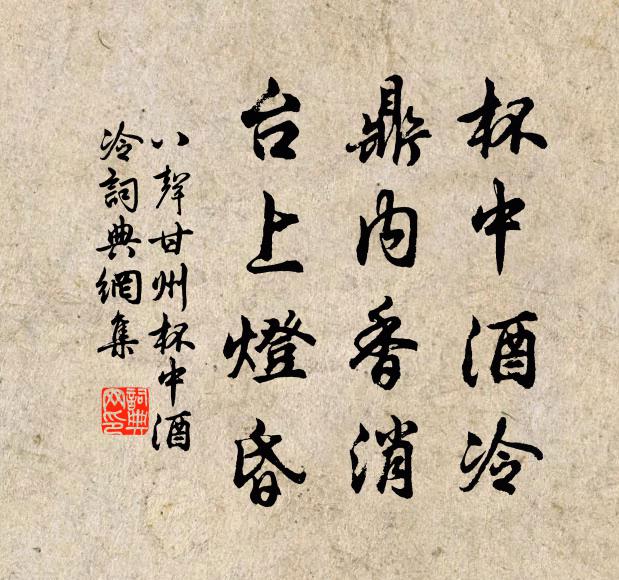 杯中酒冷
鼎内香消
台上燈昏
八聲甘州杯中酒
冷詞典網集
詞典
网印